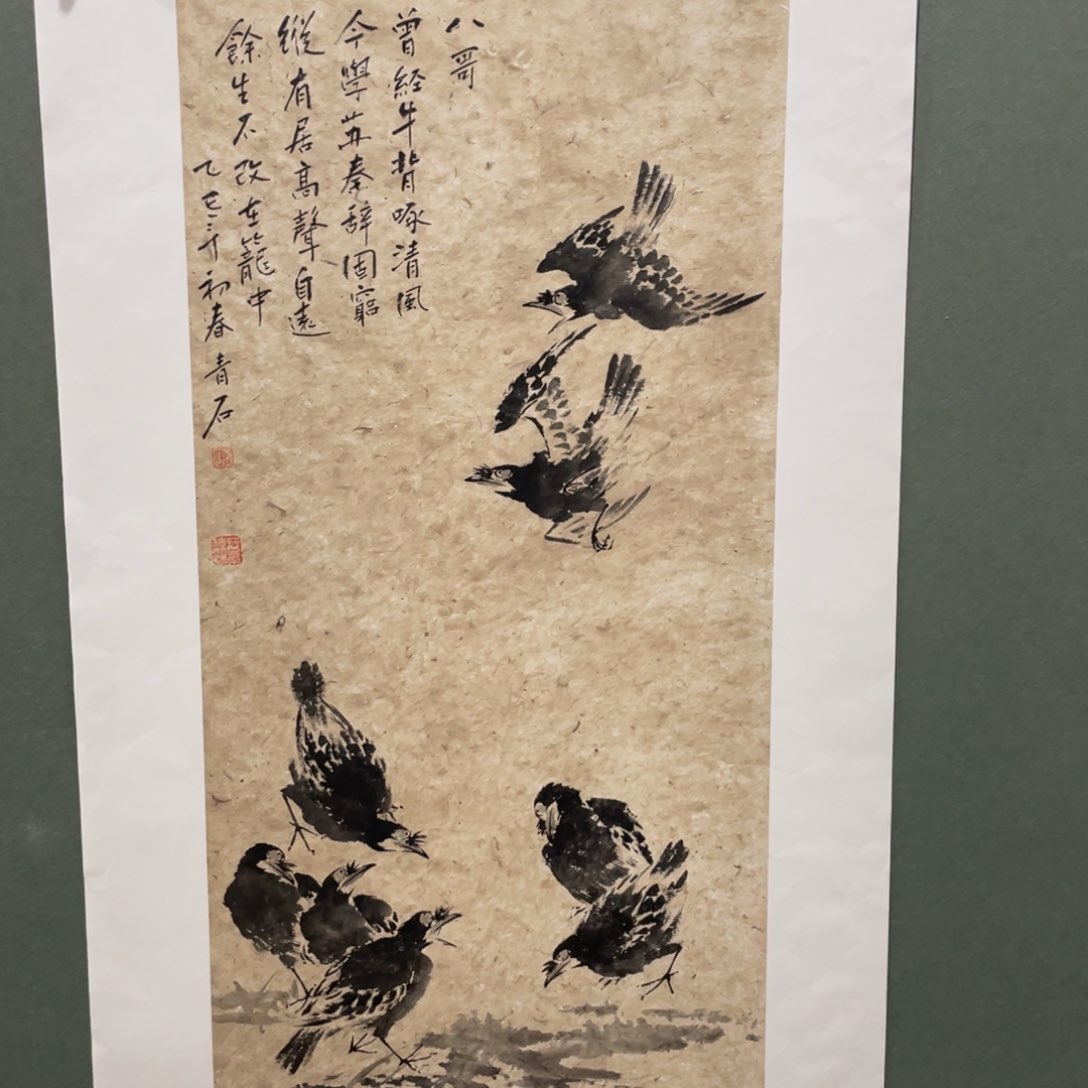 八哥
曾经牛背啄清風
今學苏秦辞固窮
縱有居高聲自遠
餘生不改在籠中
乙巳初春青石